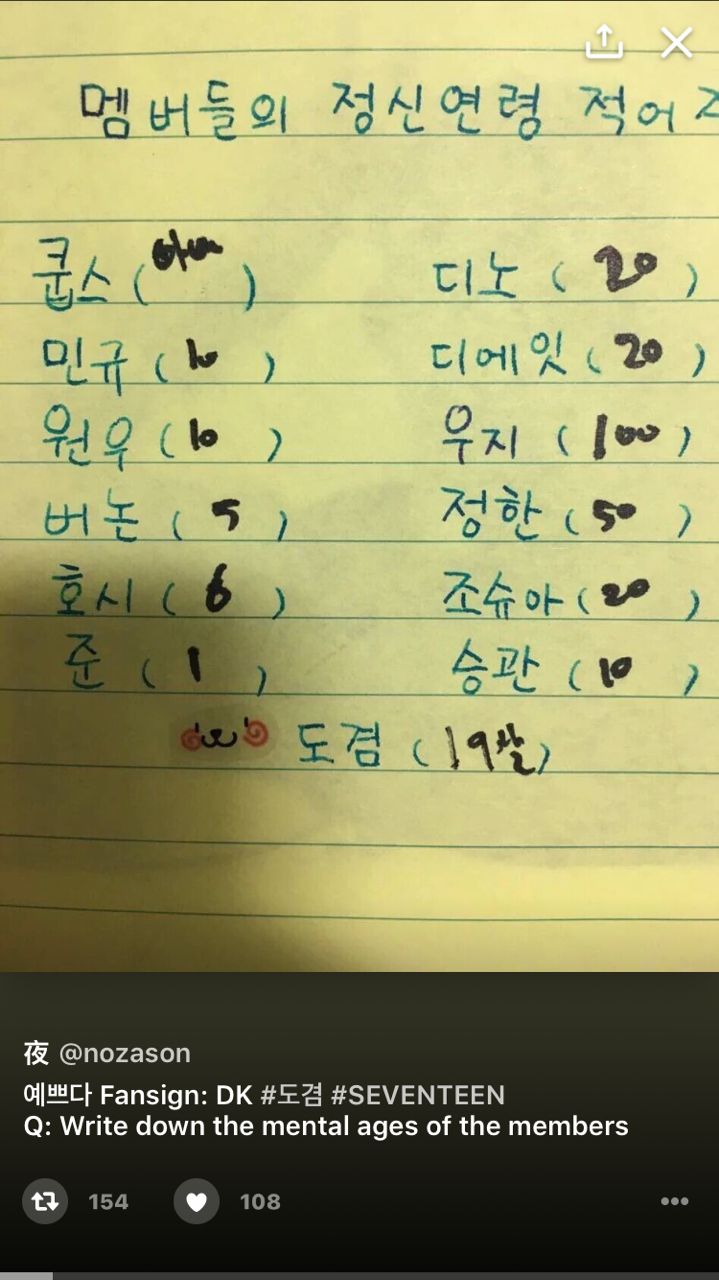 멤버들의 정신연령 적어
쿱스 ( ) 디노 ( 20 )
민규 ( 10 ) 디에잇 ( 20 )
원우 ( 10 ) 우지 ( 100 )
버논 ( 5 ) 정한 ( 50 )
호시 ( 6 ) 조슈아 ( 20 )
준 ( 1 ) 승관 ( 10 )
도겸 ( 19살 )
夜 @nozason
예쁘다 Fansign: DK #도겸 #SEVENTEEN
Q: Write down the mental ages of the members
154 108